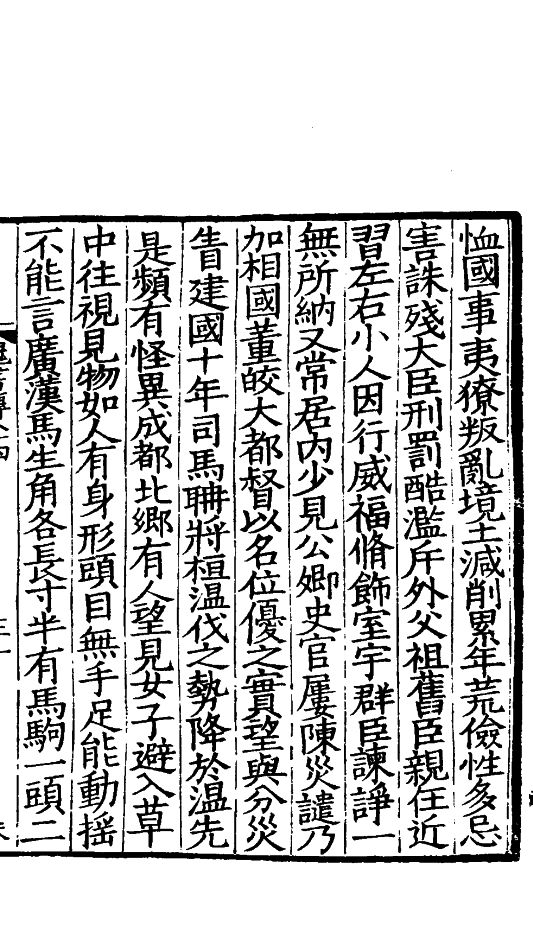 恤國事夷獠叛亂境土減削累年荒儉性多忌
害誅殘大臣刑罰酷濫斥外父祖舊臣親任近
習左右小人因行威福脩飾室宇群臣諫諍一
無所納又常居內少見公卿史官屢陳災譴乃
加相國董皎大都督以名位優之實望與分災
眚建國十年司馬聃將桓温伐之勢降於温先
是頻有怪異成都北鄉有人望見女子避入草
中往視見物如人有身形頭目無手足能動揺
不能言廣漢馬生角各長寸半有馬駒一頭二